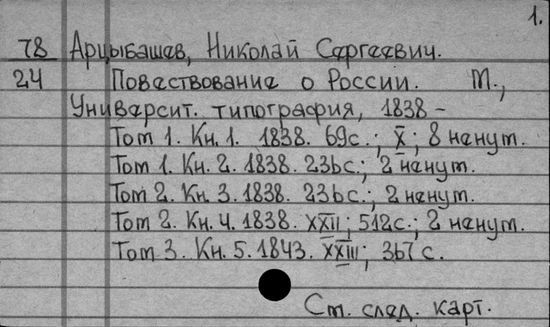 1.
78 Арцыбашев, Николай Сергеевич.
24 Повествование о России. М.,
Университ. типография, 1838 –
Том 1. Кн. 1. 1838. 69с.; X; 8 ненум.
Том 1. Кн. 2. 1838. 236с.; 2 ненум.
Том 2. Кн. 3. 1838. 236с.; 2 ненум.
Том 2. Кн. 4. 1838. XXII; 512с.; 2 ненум.
Том 3. Кн. 5. 1843. XXIII; 367 с.
См. след. карт.